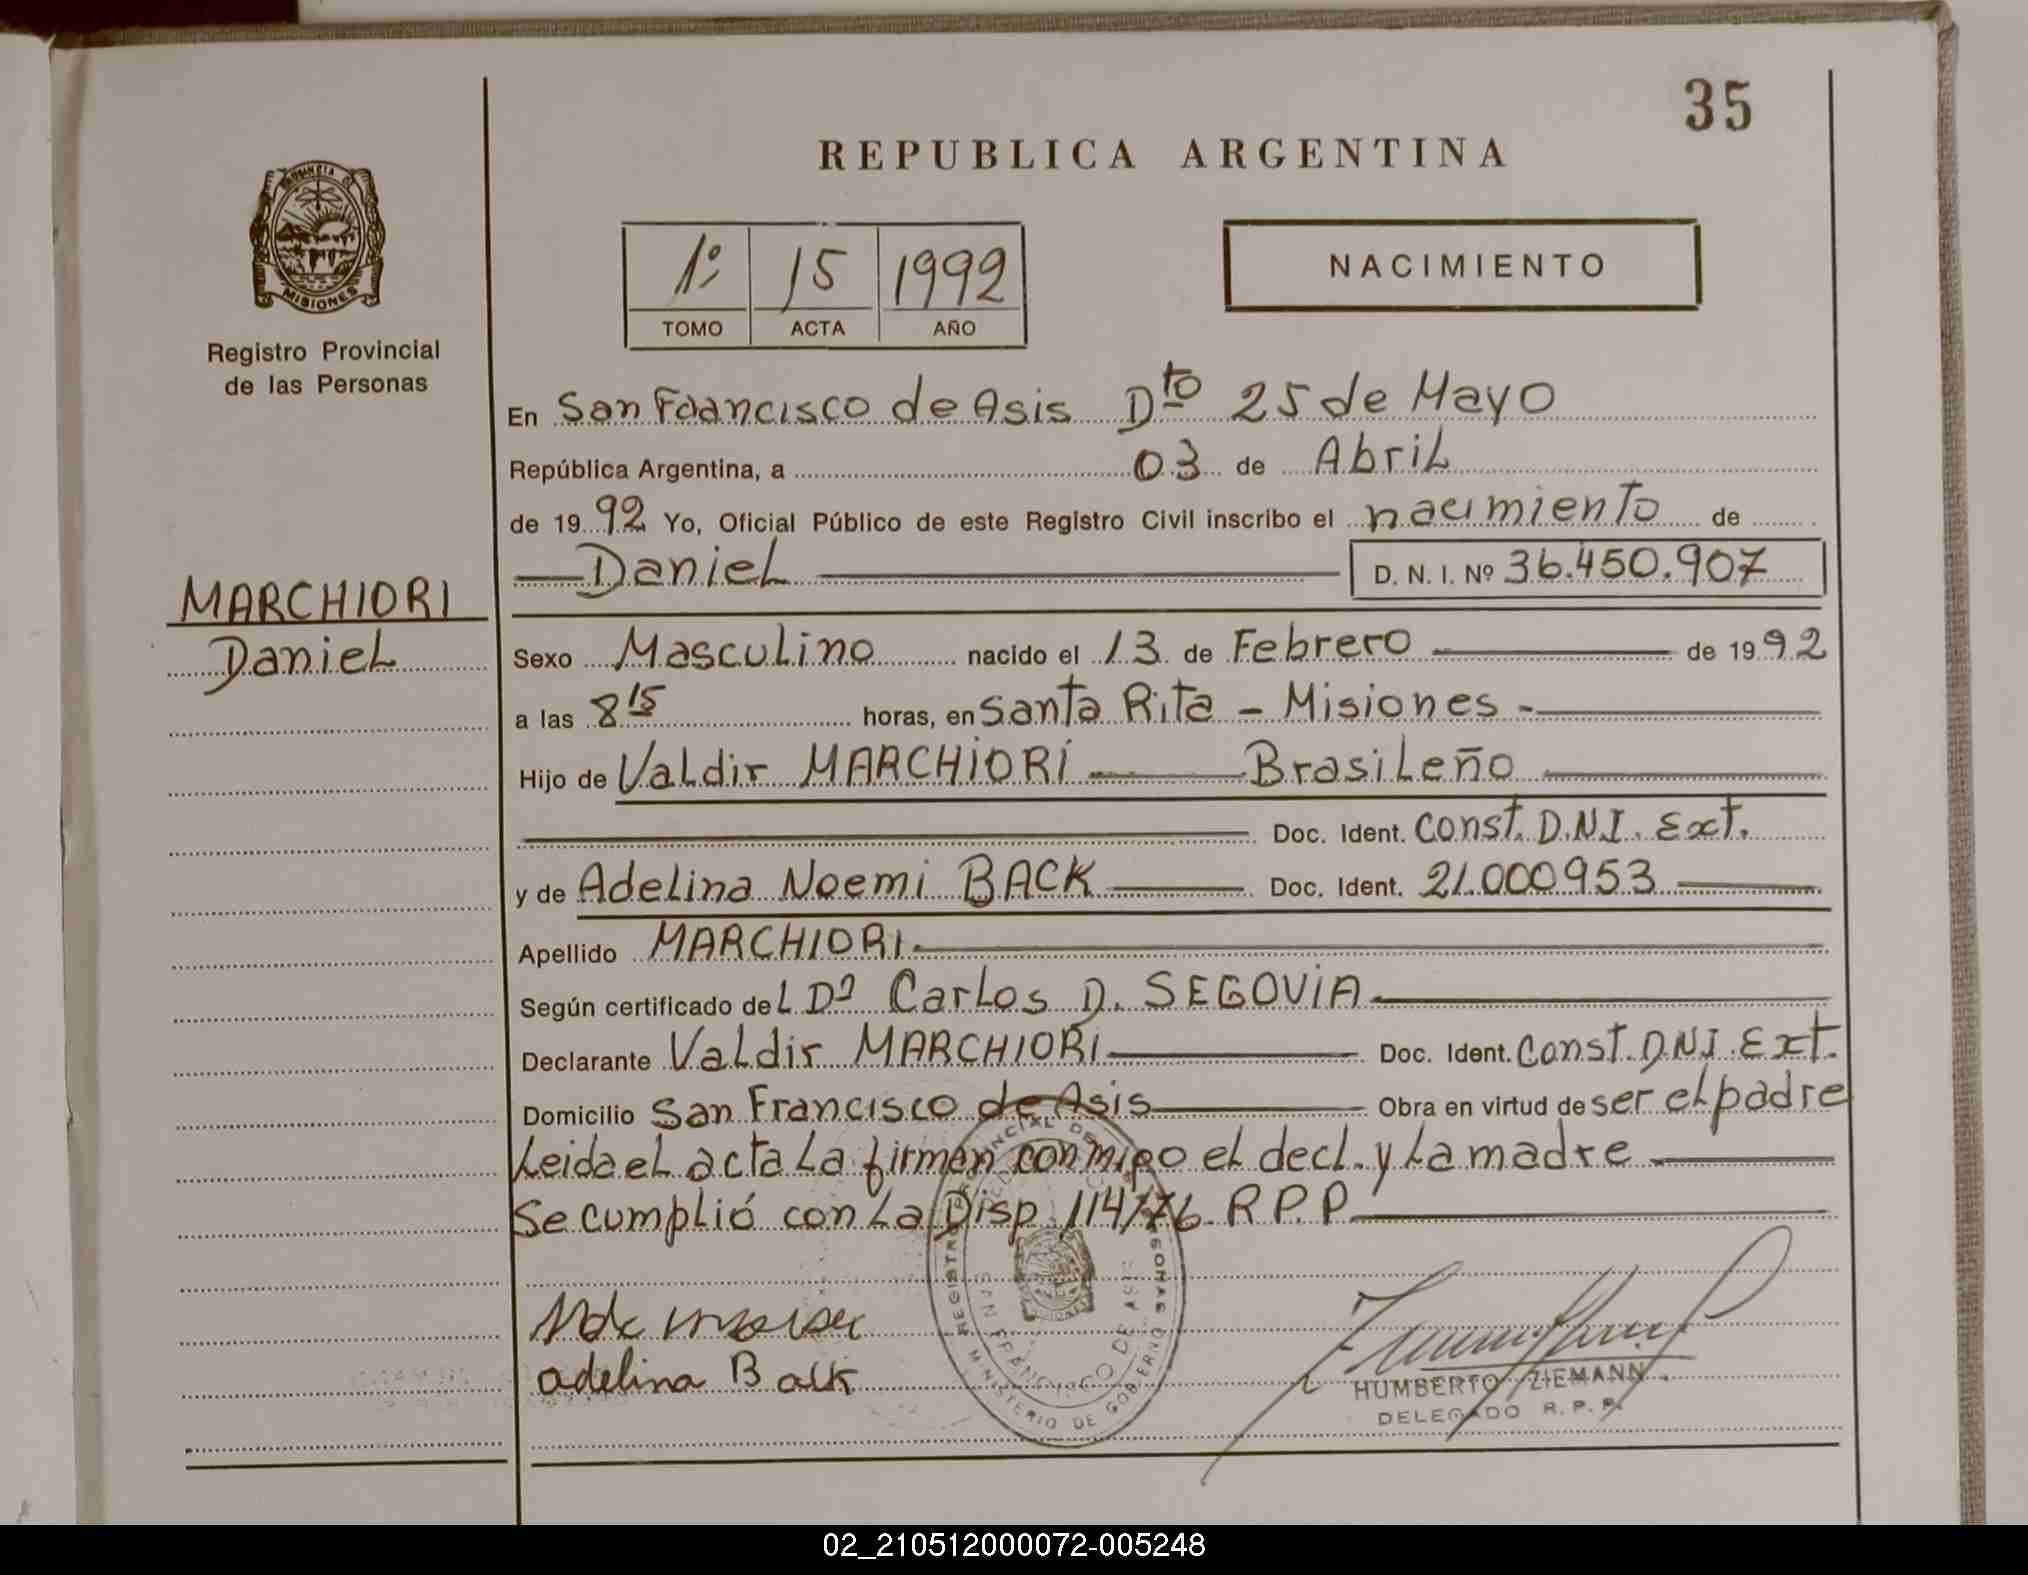 35
REPUBLICA ARGENTINA
PROVINCIA DE
MISIONES
Registro Provincial
de las Personas
1º 15 1992
TOMO ACTA AÑO
NACIMIENTO
En San Francisco de Asis Dto 25 de Mayo
República Argentina, a 03 de Abril
de 1992 Yo, Oficial Público de este Registro Civil inscribo el nacimiento de
Daniel D. N. I. Nº 36.450.907
MARCHIORI
Daniel
Sexo Masculino nacido el 13 de Febrero de 1992
a las 8 15 horas, en Santa Rita - Misiones -
Hijo de Valdir MARCHIORI Brasileño
Doc. Ident. Const. D.N.I. Ext.
y de Adelina Noemi BACK Doc. Ident. 21.000953
Apellido MARCHIORI
Según certificado del Dº Carlos D. SEGOVIA
Declarante Valdir MARCHIORI Doc. Ident. Const. D.N.I. Ext.
Domicilio San Francisco de Asis Obra en virtud de ser el padre
Leida el acta la firman conmigo el decl. y la madre
Se cumplió con la Disp. 114/76 R.P.P
REGISTRO PROVINCIAL DE LAS PERSONAS
MINISTERIO DE GOBIERNO
SAN FRANCISCO DE ASIS
adelina Back
HUMBERTO ZIEMANN
DELEGADO R. P. P.
02_210512000072-005248